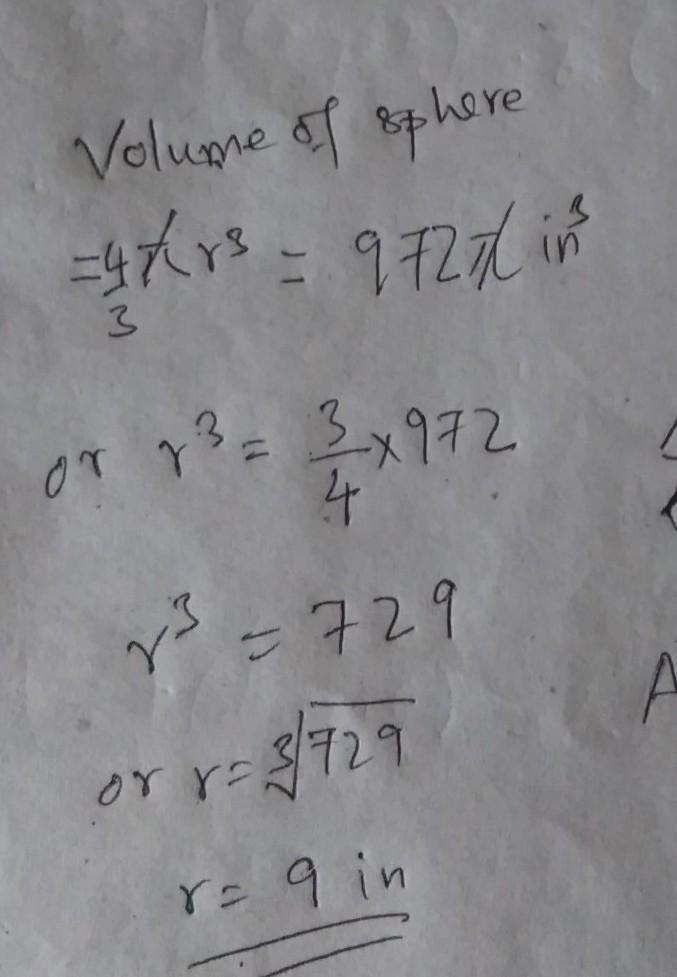 Volume of sphere
= 4/3 π r³ = 972 π in³
or r³ = 3/4 × 972
r³ = 729
or r = ∛729
r = 9 in
A